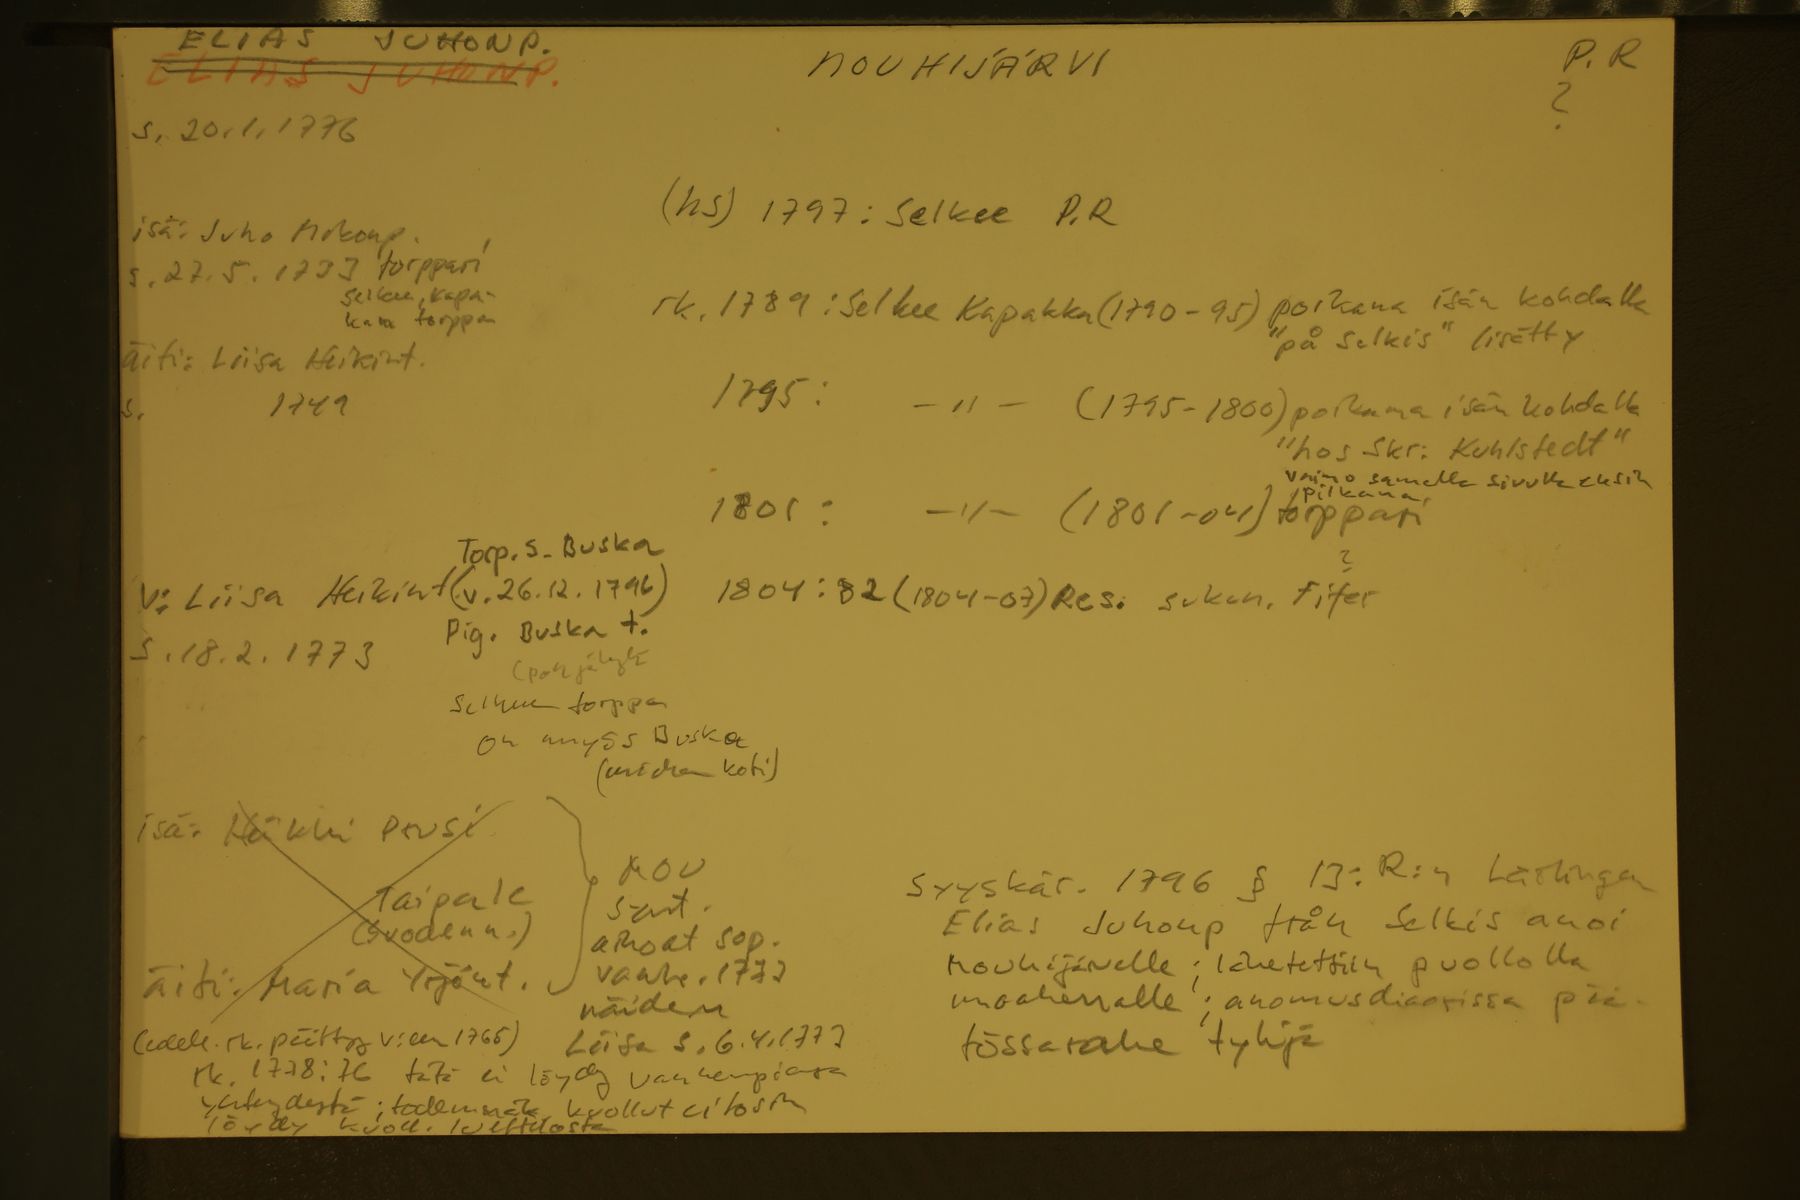 ELIAS JUHONP.
ELIAS JUHONP.
MOUHIJÄRVI
P.R
?
s. 20.1.1776
(hs) 1797: Selkee P.R
isä: Juho Mikonp.
s. 27.5.1733 torppari
Selkee, Kapa-
kan torppa
äiti: Liisa Heikint.
s. 1749
rk. 1789: Selkee Kapakka (1790-95) poikana isän kohdalla
"på Selkis" lisätty
1795: -"- (1795-1800) poikana isän kohdalla
"hos Skr: Kuhlstedt"
vaimo samalla sivulla
piikana.
1801: -"- (1801-04) torppari
?
1804: 82 (1804-07) Res. sukun. Fifer
V: Liisa Heikint (v. 26.12.1796)
Torp. s. Buska
Pig. Buska t.
s. 18.2.1773
Selkeen torppa
on myös Buska
(miehen koti)
isä: Heikki
Taipale
(Suodenn.)
äiti: Maria Yrjönt.
MOU
synt.
ainoat sop.
vanhe. 1773
näiden
Liisa s. 6.4.1773
(edell. rk. päättyy v:een 1765)
rk. 1778: 76 tätä ei löydy vanhempiensa
yhteydestä; todennäk. kuollut ei tosin
löydy kuoll. luettelosta
Syyskär. 1796 § 13: R:n Lärlingen
Elias Juhonp från Selkis anoi
Mouhijärvelle; lähetettiin puollolla
maaherralle; anomusdiaarissa pää-
tössarake tyhjä